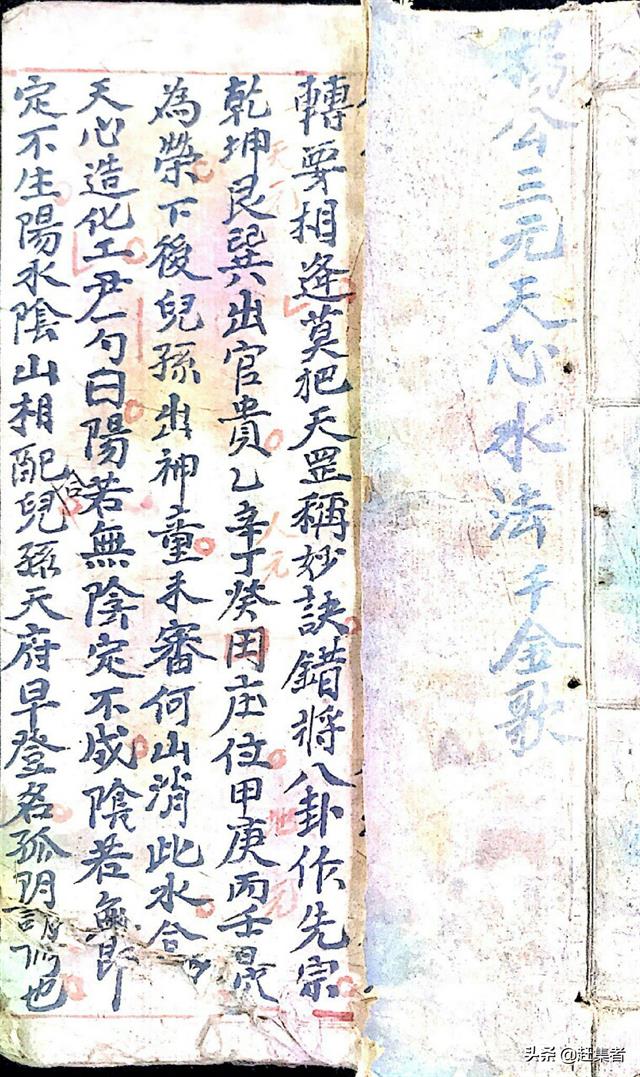 楊公三元天心水法千金歌
轉要相逢莫把天罡稱妙訣錯將八卦作先宗
乾坤艮巽出官貴乙辛丁癸田庄位甲庚丙壬最
為榮下後兒孫出神童未審何山消此水合
天心造化工尹勺曰陽若無陰定不成陰若無即
定不生陽水陰山相配合兒孫天府早登名孤阴也
人元
地元
头条 @赶集者